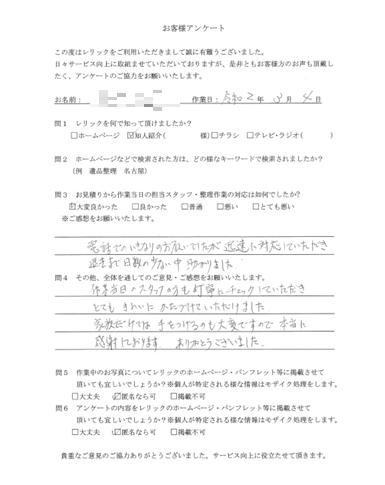 お客様アンケート
この度はレリックをご利用いただきまして誠に有難うございました。
日々サービス向上に取組ませていただいておりますが、是非ともお客様方のお声も頂戴し
たく、アンケートのご協力をお願いいたします。
お名前: 作業日: 令和2年 3月 4日
問1 レリックを何で知って頂けましたか?
□ホームページ ☑知人紹介( 様)□チラシ □テレビ・ラジオ( )
問2 ホームページなどで検索された方は、どの様なキーワードで検索されましたか?
(例 遺品整理 名古屋)
問3 お見積りから作業当日の担当スタッフ・整理作業の対応は如何でしたか?
☑大変良かった □良かった □普通 □悪い □とても悪い
※ご感想をお願いいたします。
電話でのいきなりのお願いでしたが迅速に対応していただき
退去まで日数の少ない中 助かりました
問4 その他、全体を通してのご意見・ご感想をお願いいたします。
作業当日のスタッフの方も丁寧にチェックしていただき
とても きれいに かたづけていただけました
家族だけでは 手をつけるのも大変ですので 本当に
感謝しております ありがとうございました。
問5 作業中のお写真についてレリックのホームページ・パンフレット等に掲載させて
頂いても宜しいでしょうか?※個人が特定される様な情報はモザイク処理をします。
□大丈夫 ☑匿名なら可 □掲載不可
問6 アンケートの内容をレリックのホームページ・パンフレット等に掲載させて
頂いても宜しいでしょうか?※個人が特定される様な情報はモザイク処理をします。
□大丈夫 ☑匿名なら可 □掲載不可
貴重なご意見のご協力ありがとうございました。サービス向上に役立たせて頂きます。